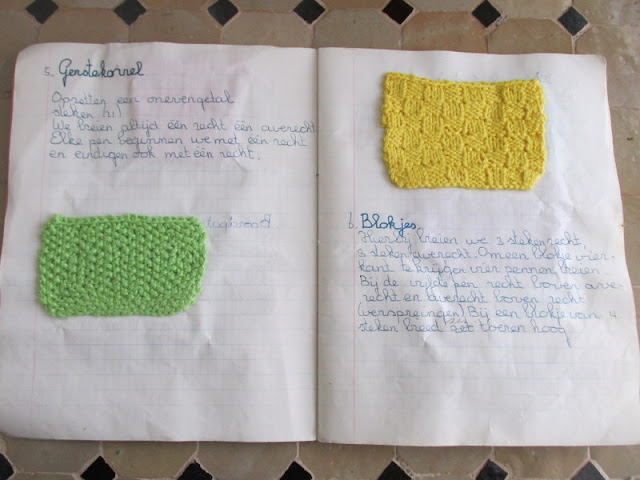 5. Gerstekorrel
Opzetten een onevengetal
steken 21
We breien altijd één recht één averecht
Elke pen beginnen we met één recht
en eindigen ook met één recht.
6. Blokjes
Hierbij breien we 3 steken recht,
3 steken averecht. Om een blokje vier-
kant te krijgen vier pennen breien.
Bij de vijfde pen recht boven ave-
recht en averecht boven recht
(verspringen) Bij een blokje van 4
steken breed zet toeren hoog